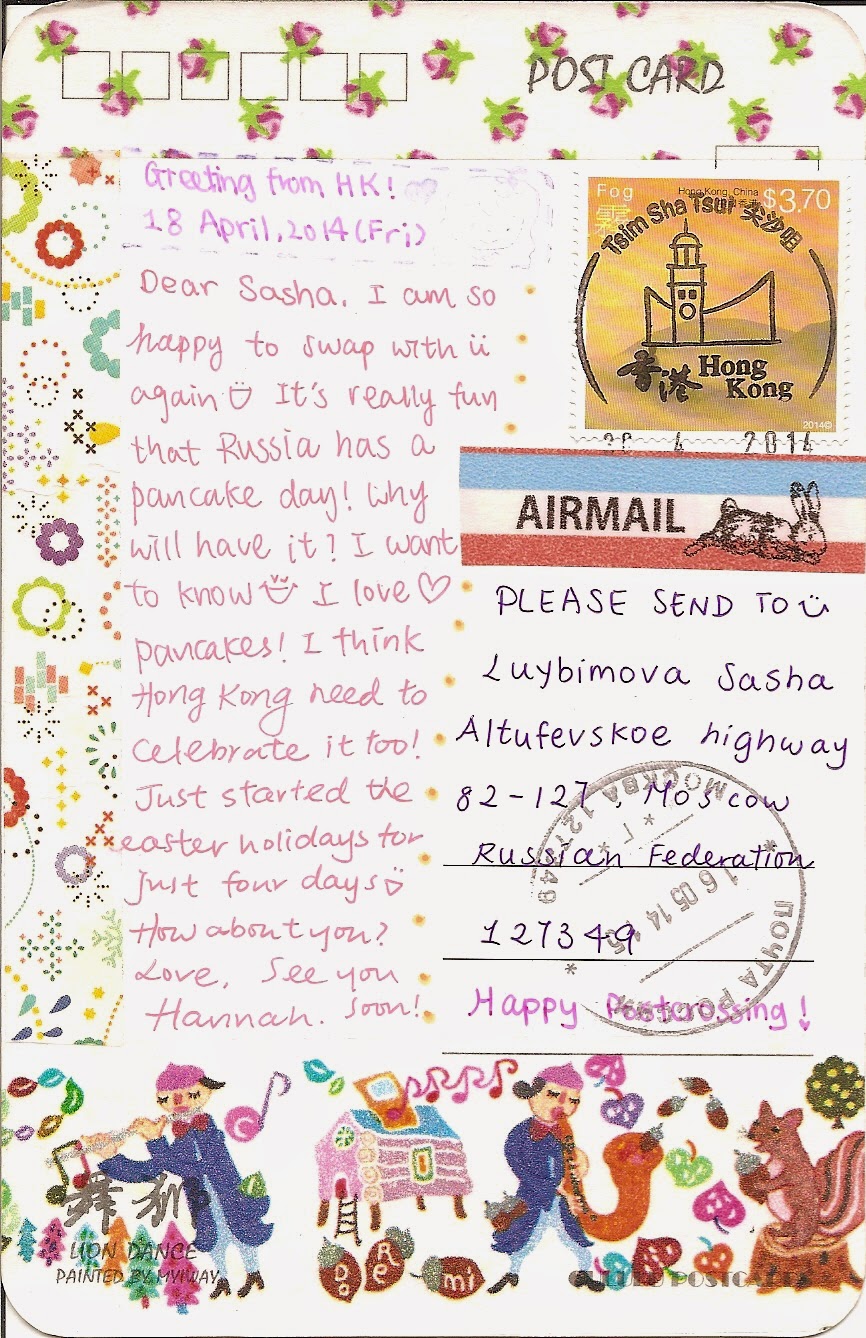 POST CARD
Greeting from HK!
18 April, 2014 (Fri)
Dear Sasha. I am so
happy to swap with ü
again It's really fun
that Russia has a
pancake day! Why
will have it? I want
to know I love ♡
pancakes! I think
Hong Kong need to
celebrate it too!
Just started the
easter holidays for
just four days
How about you?
Love, See you
Hannah. soon!
Fog
霧
Hong Kong, China
$3.70
Tsim Sha Tsui 尖沙咀
香港 Hong
Kong
2014©
4 2014
AIRMAIL
PLEASE SEND TO
Luybimova Sasha
Altufevskoe highway
82-127, Moscow
Russian Federation
127349
Happy Postcrossing!
МОСКВА 127349
16 05 14
ПОЧТА РОССИИ
Do
Re
mi
舞獅
LION DANCE
PAINTED BY MYIWAY